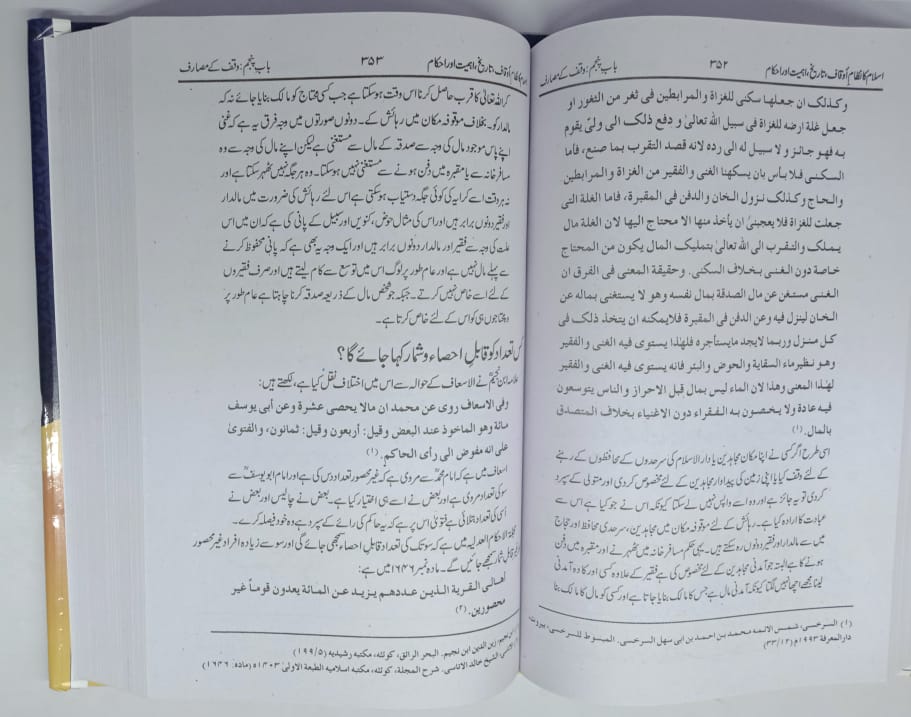 اسلام کا نظامِ اوقاف، تاریخ، اہمیت اور احکام ۳۵۲ باب پنجم: وقف کے مصارف
وكذلك ان جعلها سكنى للغزاة والمرابطين فى ثغر من الثغور او
جعل غلة ارضه للغزاة فى سبيل الله تعالىٰ و دفع ذلك الى ولىّ يقوم
به فهو جائز ولا سبيل له الى رده لانه قصد التقرب بما صنع، فاما
السكنى فلا بأس بان يسكنها الغنى والفقير من الغزاة والمرابطين
والحاج وكذلك نزول الخان والدفن فى المقبرة، فاما الغلة التى
جعلت للغزاة فلا يعجبنى ان يأخذ منها الا محتاج اليها لان الغلة مال
يملك والتقرب الى الله تعالىٰ بتمليك المال يكون من المحتاج
خاصة دون الغنى بخلاف السكنى. وحقيقة المعنى فى الفرق ان
الغنى مستغن عن مال الصدقة بمال نفسه وهو لا يستغنى بماله عن
الخان لينزل فيه وعن الدفن فى المقبرة فلا يمكنه ان يتخذ ذلك فى
كل منزل وربما لا يجد ما يستأجره فلهٰذا يستوى فيه الغنى والفقير
وهو نظير ماء السقاية والحوض والبئر فانه يستوى فيه الغنى والفقير
لهٰذا المعنى وهذا لان الماء ليس بمال قبل الاحراز والناس يتوسعون
فيه عادة ولا يخصون به الفقراء دون الاغنياء بخلاف المتصدق
بالمال. (۱)
اسی طرح اگر کسی نے اپنا مکان مجاہدین یا دار الاسلام کی سرحدوں کے محافظوں کے رہنے
کے لئے وقف کیا یا اپنی زمین کی پیداوار مجاہدین کے لئے مخصوص کر دی اور متولی کے سپرد
کر دی تو یہ جائز ہے اور وہ اسے واپس نہیں لے سکتا کیونکہ اس نے جو کیا ہے اس سے
عبادت کا ارادہ کیا ہے۔ رہائش کے لئے موقوفہ مکان میں مجاہدین، سرحدی محافظ اور حجاج
میں سے مالدار اور فقیر دونوں رہ سکتے ہیں۔ یہی حکم مسافر خانہ میں ٹھہرنے اور مقبرہ میں دفن
ہونے کا ہے البتہ جو آمدنی مجاہدین کے لئے مخصوص کی ہے فقیر کے علاوہ کسی اور کا وہ آمدنی
لینا مجھے اچھا نہیں لگتا کیونکہ آمدنی مال ہے جس کا مالک بنایا جاتا ہے اور کسی کو مال کا مالک بنا
(۱) السرخسی، شمس الائمه محمد بن احمد بن ابی سهل السرخسی. المبسوط للسرخسی، بیروت،
دار المعرفة ۱۹۹۳م (۳۳/۱۲)
اسلام کا نظامِ اوقاف، تاریخ، اہمیت اور احکام ۳۵۳ باب پنجم: وقف کے مصارف
کر اللہ تعالیٰ کا قرب حاصل کرنا اس وقت ہو سکتا ہے جب کسی محتاج کو مالک بنایا جائے نہ کہ
مالدار کو۔ بخلاف موقوفہ مکان میں رہائش کے۔ دونوں صورتوں میں وجہ فرق یہ ہے کہ غنی
اپنے پاس موجود مال کی وجہ سے صدقہ کے مال سے مستغنی ہے لیکن اپنے مال کی وجہ سے وہ
مسافر خانہ سے یا مقبرہ میں دفن ہونے سے مستغنی نہیں ہو سکتا۔ وہ ہر جگہ نہیں ٹھہر سکتا ہے اور
نہ ہر وقت اسے کرایہ کی کوئی جگہ دستیاب ہو سکتی ہے اس لئے رہائش کی ضرورت میں مالدار
اور فقیر دونوں برابر ہیں اور اس کی مثال حوض، کنویں اور سبیل کے پانی کی ہے کہ ان میں اس
علت کی وجہ سے فقیر اور مالدار دونوں برابر ہیں اور ایک وجہ یہ بھی ہے کہ پانی محفوظ کرنے
سے پہلے مال نہیں ہے اور عام طور پر لوگ اس میں توسع سے کام لیتے ہیں اور صرف فقیروں
کے لئے اسے خاص نہیں کرتے۔ جبکہ جو شخص مال کے ذریعہ صدقہ کرنا چاہتا ہے عام طور پر
وہ محتاجوں ہی کو اس کے لئے خاص کرتا ہے۔
کس تعداد کو قابلِ احصاء و شمار کہا جائے گا؟
علامہ ابن نجیمؒ نے الاسعاف کے حوالہ سے اس میں اختلاف نقل کیا ہے، لکھتے ہیں:
وفى الاسعاف روى عن محمد ان مالا يحصى عشرة وعن أبى يوسف
مائة وهو الماخوذ عند البعض وقيل: أربعون وقيل: ثمانون، والفتوىٰ
على انه مفوض الى رأى الحاكم. (۱)
اسعاف میں ہے کہ امام محمدؒ سے مروی ہے کہ غیر محصور تعداد دس کی ہے اور امام ابو یوسفؒ سے
سو کی تعداد مروی ہے اور بعض نے اسے ہی اختیار کیا ہے۔ بعض نے چالیس اور بعض نے
اَسّی کی تعداد بتلائی ہے فتویٰ اس پر ہے کہ یہ حاکم کی رائے کے سپرد ہے وہ خود فیصلہ کرے۔
مجلۃ الاحکام العدلیہ میں ہے کہ سو تک کی تعداد قابلِ احصاء سمجھی جائے گی اور سو سے زیادہ افراد غیر محصور
قابلِ شمار سمجھے جائیں گے۔ مادہ نمبر ۱۶۴۶ میں ہے:
اهالى القرية الذين عددهم يزيد عن المائة يعدون قوماً غير
محصورين. (۲)
ابن نجیم، زین الدین ابن نجیم. البحر الرائق، کوئٹہ، مکتبہ رشیدیہ (۱۹۹/۵)
الاتاسی، الشیخ خالد الاتاسی. شرح المجلة، کوئٹہ، مکتبہ اسلامیہ الطبعة الاولیٰ ۱۴۰۳ھ (مادہ: ۱۶۴۶)